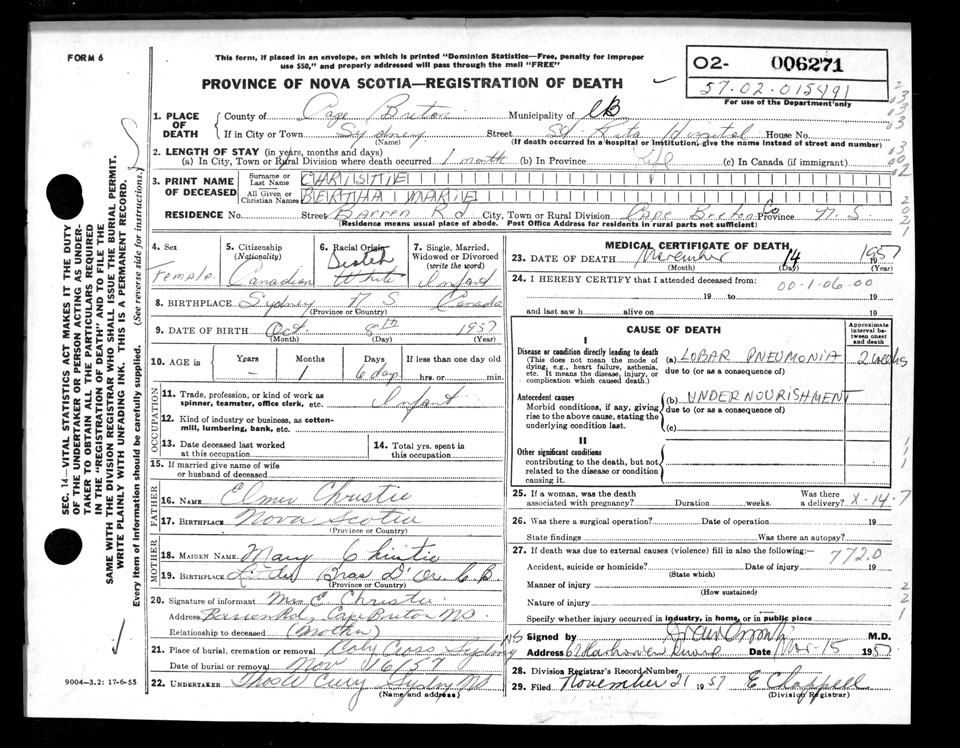 FORM 6
This form, if placed in an envelope, on which is printed "Dominion Statistics—Free, penalty for improper
use $50," and properly addressed will pass through the mail "FREE"
PROVINCE OF NOVA SCOTIA—REGISTRATION OF DEATH
02- 006271
57-02-015491
For use of the Department only
1. PLACE OF DEATH
County of Cape Breton Municipality of CB
If in City or Town Sydney Street St Rita Hospital House No.
(Name) (If death occurred in a hospital or institution, give the name instead of street and number)
2. LENGTH OF STAY (in years, months and days)
(a) In City, Town or Rural Division where death occurred 1 month (b) In Province Life (c) In Canada (if immigrant)
3. PRINT NAME OF DECEASED
Surname or Last Name CHRISTIE
All Given or Christian Names BERTHA MARIE
RESIDENCE No. Street Barren Rd City, Town or Rural Division Cape Breton Co Province N.S.
(Residence means usual place of abode. Post Office Address for residents in rural parts not sufficient)
4. Sex Female
5. Citizenship (Nationality) Canadian
6. Racial Origin Scotch White
7. Single, Married, Widowed or Divorced (write the word) Infant
8. BIRTHPLACE Sydney N S Canada
(Province or Country)
9. DATE OF BIRTH Oct 8th 1957
(Month) (Day) (Year)
10. AGE in Years - Months 1 Days 6 days If less than one day old hrs. or min.
OCCUPATION
11. Trade, profession, or kind of work as spinner, teamster, office clerk, etc. Infant
12. Kind of industry or business, as cotton-mill, lumbering, bank, etc.
13. Date deceased last worked at this occupation
14. Total yrs. spent in this occupation
15. If married give name of wife or husband of deceased
FATHER
16. NAME Elmer Christie
17. BIRTHPLACE Nova Scotia
(Province or Country)
MOTHER
18. MAIDEN NAME Mary Christie
19. BIRTHPLACE Little Bras D'Or C.B.
(Province or Country)
20. Signature of informant Mrs E. Christie
Address Barren Rd, Cape Breton NS
Relationship to deceased (Mother)
21. Place of burial, cremation or removal Holy Cross Sydney NS
Date of burial or removal Nov 16/57
22. UNDERTAKER Thos W Curry Sydney NS
(Name and address)
MEDICAL CERTIFICATE OF DEATH
23. DATE OF DEATH November 14 1957
(Month) (Day) (Year)
24. I HEREBY CERTIFY that I attended deceased from:
00-1-06-00
19 to 19
and last saw h alive on 19
CAUSE OF DEATH
Approximate interval between onset and death
I
Disease or condition directly leading to death
(This does not mean the mode of dying, e.g., heart failure, asthenia, etc. It means the disease, injury, or complication which caused death.)
(a) LOBAR PNEUMONIA 2 weeks
due to (or as a consequence of)
Antecedent causes
Morbid conditions, if any, giving rise to the above cause, stating the underlying condition last.
(b) UNDERNOURISHMENT
due to (or as a consequence of)
(c)
II
Other significant conditions
contributing to the death, but not related to the disease or condition causing it.
25. If a woman, was the death associated with pregnancy? Duration weeks. Was there a delivery? X-14-7
26. Was there a surgical operation? Date of operation 19
State findings Was there an autopsy?
27. If death was due to external causes (violence) fill in also the following:—
772.0
Accident, suicide or homicide? Date of injury 19
(State which)
Manner of injury
(How sustained)
Nature of injury
Specify whether injury occurred in industry, in home, or in public place
Signed by M.D.
Address Date Nov-15 1957
28. Division Registrar's Record Number
29. Filed November 21 1957 E Chappell
(Division Registrar)
9004-3.2: 17-6-55
SEC. 14—VITAL STATISTICS ACT MAKES IT THE DUTY
OF THE UNDERTAKER OR PERSON ACTING AS UNDER-
TAKER TO OBTAIN ALL THE PARTICULARS REQUIRED
IN THE "REGISTRATION OF DEATH" AND TO FILE THE
SAME WITH THE DIVISION REGISTRAR WHO SHALL ISSUE THE BURIAL PERMIT.
WRITE PLAINLY WITH UNFADING INK. THIS IS A PERMANENT RECORD.
Every item of information should be carefully supplied. (See reverse side for instructions.)